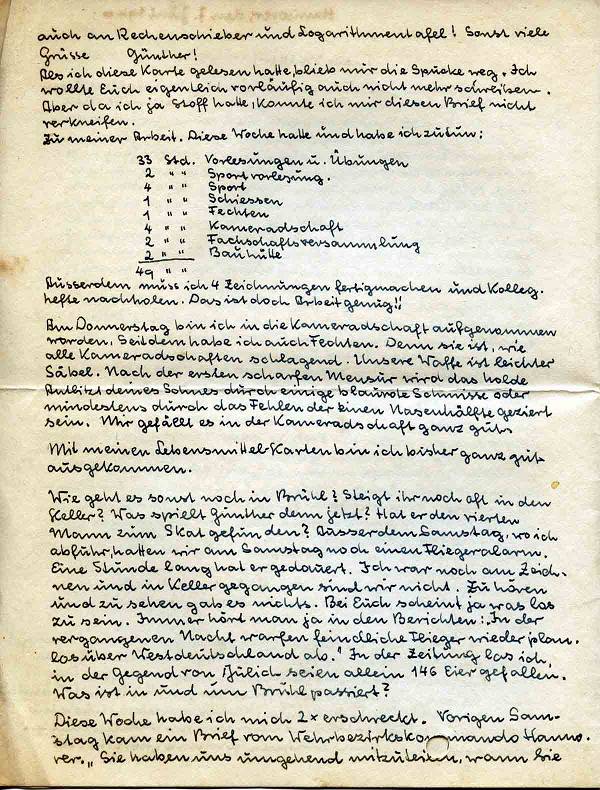 auch an Rechenschieber und Logarithmentafel! Sonst viele
Grüsse Günther!
Als ich diese Karte gelesen hatte, blieb mir die Spucke weg. Ich
wollte Euch eigentlich vorläufig auch nicht mehr schreiben.
Aber da ich ja Stoff hatte, konnte ich mir diesen Brief nicht
verkneifen.
Zu meiner Arbeit. Diese Woche hatte und habe ich zu tun:
33 Std. Vorlesungen u. Übungen
2 " " Sportvorlesung.
4 " " Sport
1 " " Schiessen
1 " " Fechten
4 " " Kameradschaft
2 " " Fachschaftsversammlung
2 " " Bauhütte
49 " "
Ausserdem muss ich 4 Zeichnungen fertigmachen und Kolleg-
hefte nachholen. Das ist doch Arbeit genug!!
Am Donnerstag bin ich in die Kameradschaft aufgenommen
worden. Seitdem habe ich auch Fechten. Denn sie ist, wie
alle Kameradschaften schlagend. Unsere Waffe ist leichter
Säbel. Nach der ersten scharfen Mensur wird das holde
Antlitz deines Sohnes durch einige blaurote Schmisse oder
mindestens durch das Fehlen der einen Nasenhälfte geziert
sein. Mir gefällt es in der Kameradschaft ganz gut.
Mit meinen Lebensmittel-Karten bin ich bisher ganz gut
ausgekommen.
Wie geht es sonst noch in Brühl? Steigt ihr noch oft in den
Keller? Was spielt Günther denn jetzt? Hat er den vierten
Mann zum Skat gefunden? Ausserdem Samstag, wo ich
abfuhr, hatten wir am Samstag noch einen Fliegeralarm.
Eine Stunde lang hat er gedauert. Ich war noch am Zeich-
nen und in Keller gegangen sind wir nicht. Zu hören
und zu sehen gab es nichts. Bei Euch scheint ja was los
zu sein. Immer hört man ja in den Berichten: "In der
vergangenen Nacht warfen feindliche Flieger wieder plan-
los über Westdeutschland ab." In der Zeitung las ich,
in der Gegend von Jülich seien allein 146 Eier gefallen.
Was ist in und um Brühl passiert?
Diese Woche habe ich mich 2x erschreckt. Vorigen Sam-
stag kam ein Brief vom Wehrbezirkskommando Hanno-
ver. „Sie haben uns umgehend mitzuteilen, wann Sie